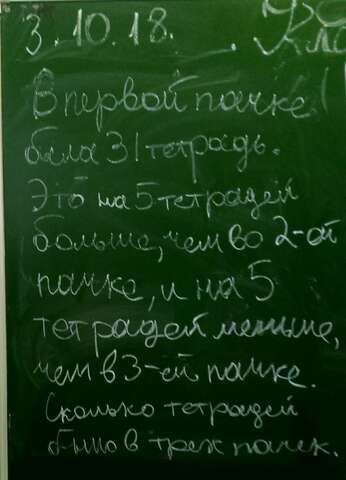 3.10.18. Кла
В первой пачке
была 31 тетрадь.
Это на 5 тетрадей
больше, чем во 2-ой
пачке, и на 5
тетрадей меньше,
чем в 3-ей пачке.
Сколько тетрадей
было в трех пачек.